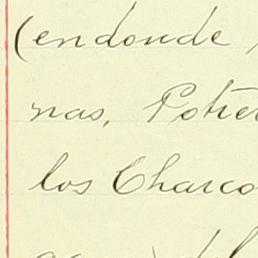 (endonde
nas, Potre
los Charco